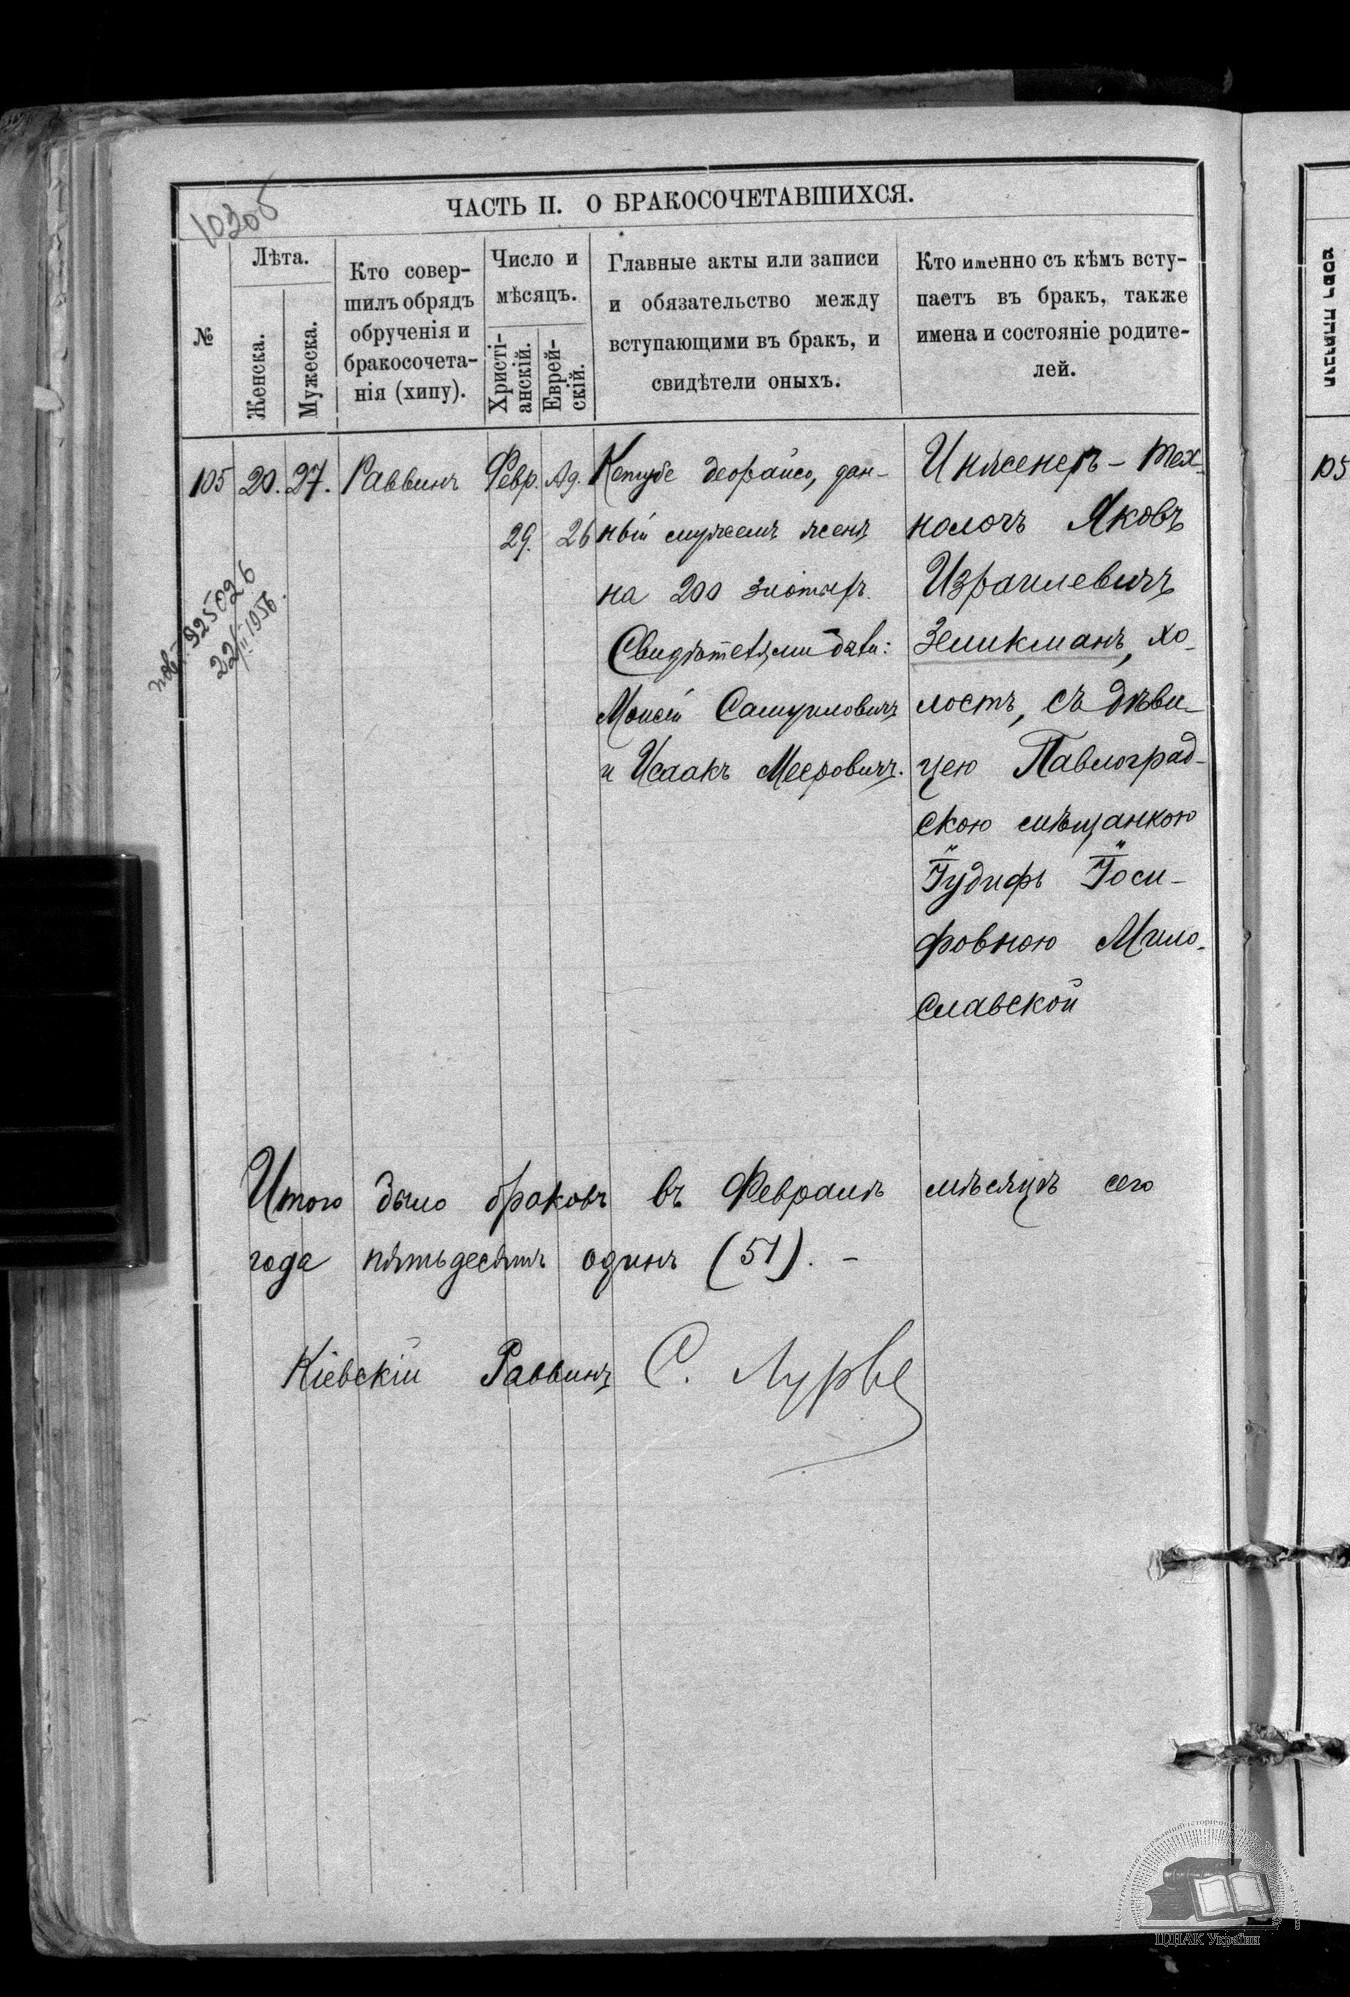 103об
ЧАСТЬ II. О БРАКОСОЧЕТАВШИХСЯ.
№
Лѣта.
Женска.
Мужеска.
Кто совер-
шилъ обрядъ
обрученія и
бракосочета-
нія (хипу).
Число и
мѣсяцъ.
Христі-
анскій.
Еврей-
скій.
Главные акты или записи
и обязательство между
вступающими въ бракъ, и
свидѣтели оныхъ.
Кто именно съ кѣмъ всту-
паетъ въ бракъ, также
имена и состояніе родите-
лей.
105 20. 27. Раввинъ Февр. Ад.
29. 26
Кетубе деорайсо, дан-
ный мужемъ женѣ
на 200 злотыхъ.
Свидѣтелями были:
Моисей Самуиловичъ
и Исаакъ Мееровичъ.
Инженеръ-тех-
нологъ Яковъ
Израилевичъ
Зеликманъ, хо-
лостъ, съ дѣви-
цею Павлоград-
скою мѣщанкою
Іудифь Іоси-
фовною Мило-
славской
925026
22/II 1956.
Итого было браковъ въ Февралѣ мѣсяцѣ сего
года пятьдесятъ одинъ (51). –
Кіевскій Раввинъ С. Лурье
105
ЦДІАК України